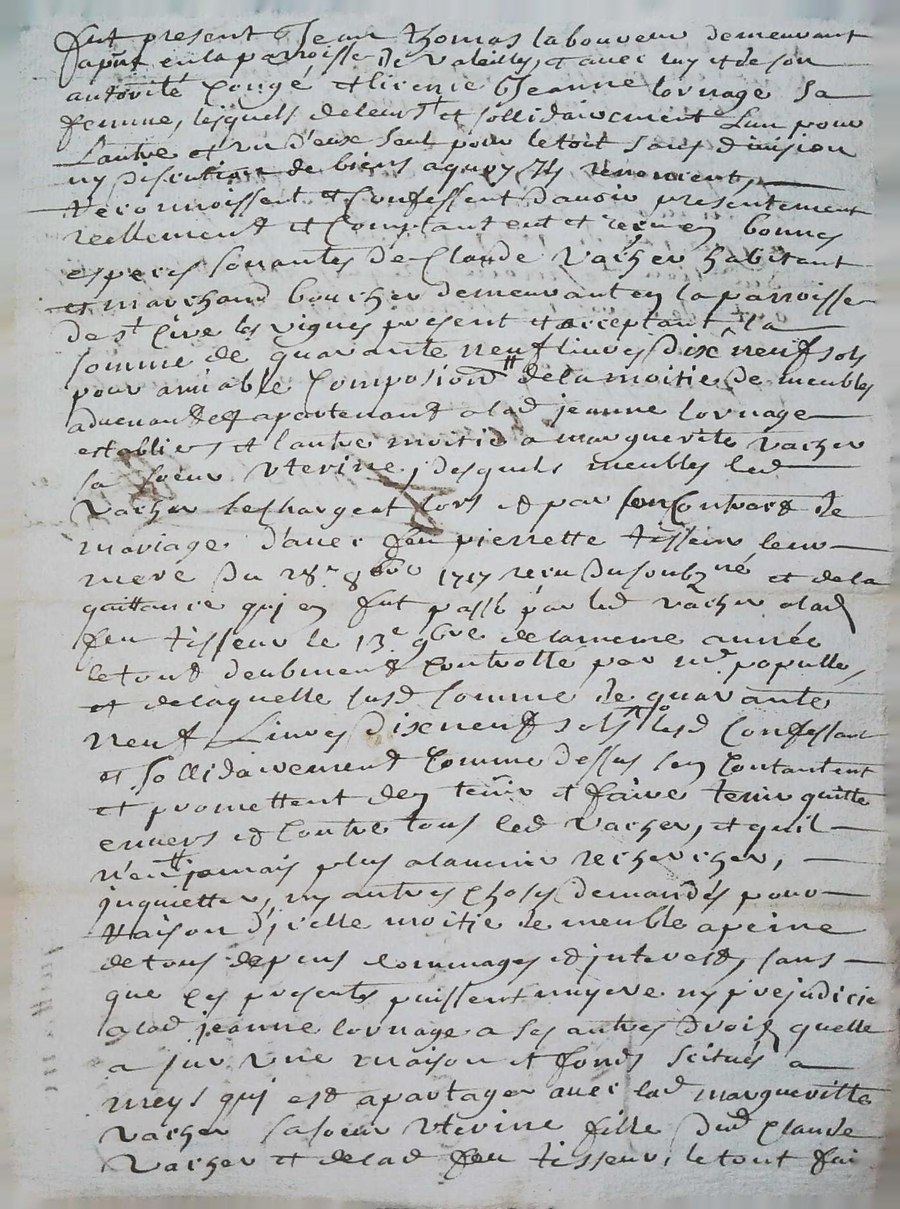 fut present Jean thomas laboureur demeurant
a pnt en la parroisse de valeille, et avec luy et de son
autorité congé et licence Jeanne lornage sa
femme, lesquels de leur et sollidairement L'un pour
L'autre et un d'eux seul pour le tout sans division
ny discution de biens a quoy ils renoncent,
Reconnoissent et Confessent d'avoir presentement
reellement et Comptant eut et receu en bonnes
especes sonantes de Claude vacher habitant
et marchand boucher demeurant en la parroisse
de st Cire les vignes present et acceptant la
somme de quarante neuf livres dix neuf sols
pour amiable Composion de la moitié de meubles
advenant et apartenant a lad jeanne lornage
establies et l'autre moitié a marguerite vacher
sa soeur Uterine, desquels meubles led
vacher se chargeat lors et par son Contract de
mariage d'avec feu pierrette tisseur leur
mere du 28e 8bre 1717 receu du soubzné et de la
quittance qui en fut passé par led vacher a lad
feu tisseur le 13e 9bre de la meme année
le tout deubment Controllé par mr populle,
et de laquelle susd somme de quarante
neuf Livres dix neuf sols lesd Confessant
et sollidairement Comme dessus sen Contantent
et promettent den tenir et faire tenir quitte
envers et Contre tous led vacher, et quil
n'en jamais plus a lavenir recherché,
inquietter, ny autres choses demandés pour
Raison d'icelle moitié de meuble a peine
de tous depens dommages et interest, sans
que ces presentes puissent nuyre ny prejudicie
a lad jeanne lornage a ses autres droits quelle
a sur une maison et fonds scitués a
meys qui est a partager avec lad margueritte
vacher sa soeur Uterine fille dud Claude
vacher et de lad feu tisseur, le tout fai